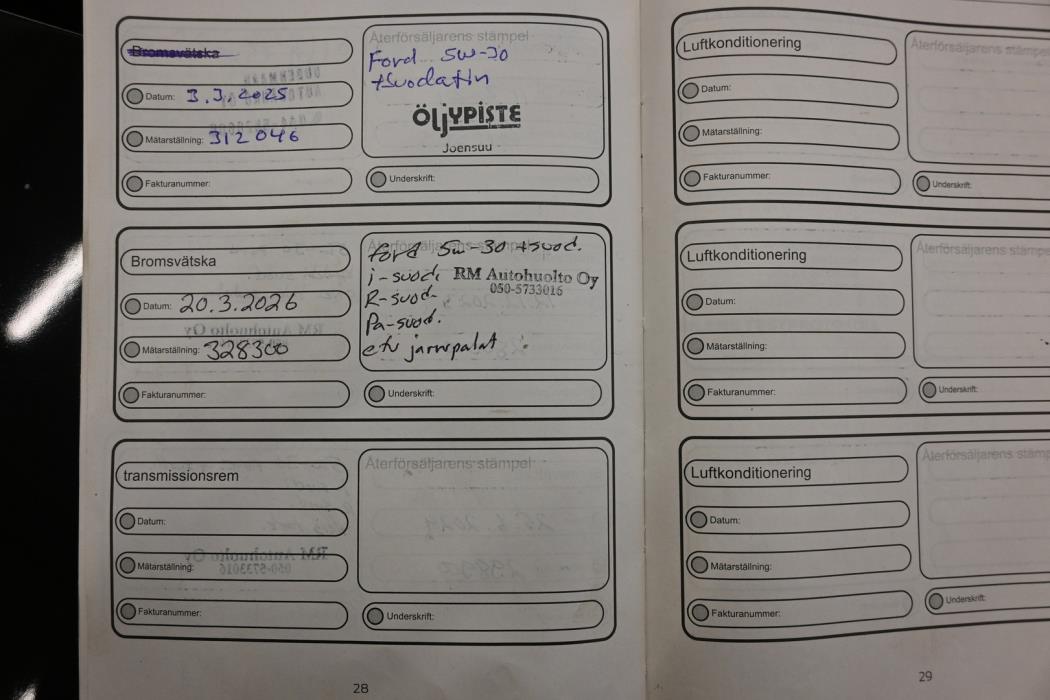 Bromsvätska
Datum: 3.3.2025
Mätarställning: 312046
Fakturanummer:
Återförsäljarens stämpel
Ford 5W-30
+suodatin
ÖljYPISTE
Joensuu
Underskrift:
Bromsvätska
Datum: 20.3.2026
Mätarställning: 328300
Fakturanummer:
Återförsäljarens stämpel
Ford 5w-30 +suod.
i-suod.
RM Autohuolto Oy
050-5733016
R-suod.
Pa-suod.
etu jarrupalat
Underskrift:
transmissionsrem
Datum:
Mätarställning:
Fakturanummer:
Återförsäljarens stämpel
Underskrift:
28
Luftkonditionering
Datum:
Mätarställning:
Fakturanummer:
Återförsäljarens stämpel
Underskrift:
Luftkonditionering
Datum:
Mätarställning:
Fakturanummer:
Återförsäljarens stämpe
Underskrift:
Luftkonditionering
Datum:
Mätarställning:
Fakturanummer:
Återförsäljarens stämp
Underskrift:
29